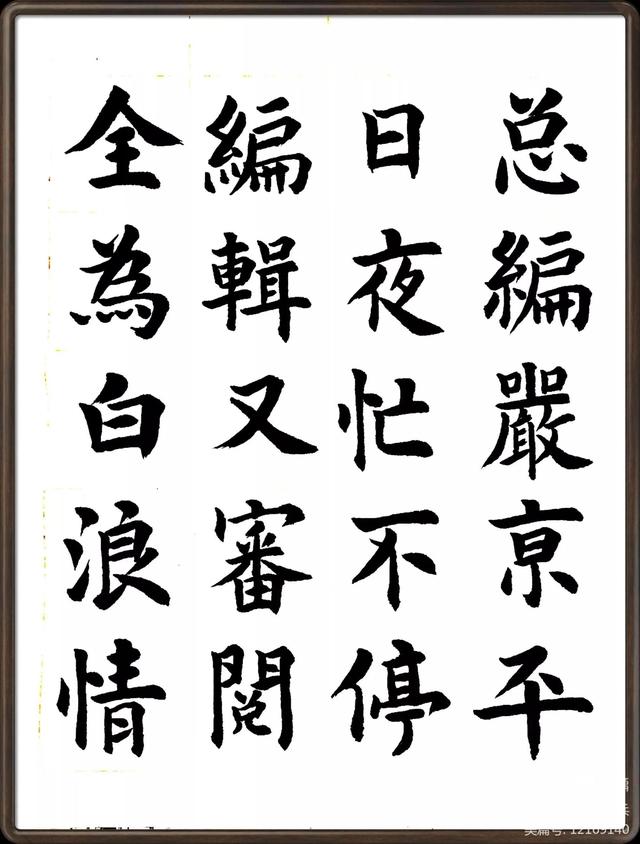 总編嚴亰平
日夜忙不停
編輯又審閱
全為白浪情
美篇号: